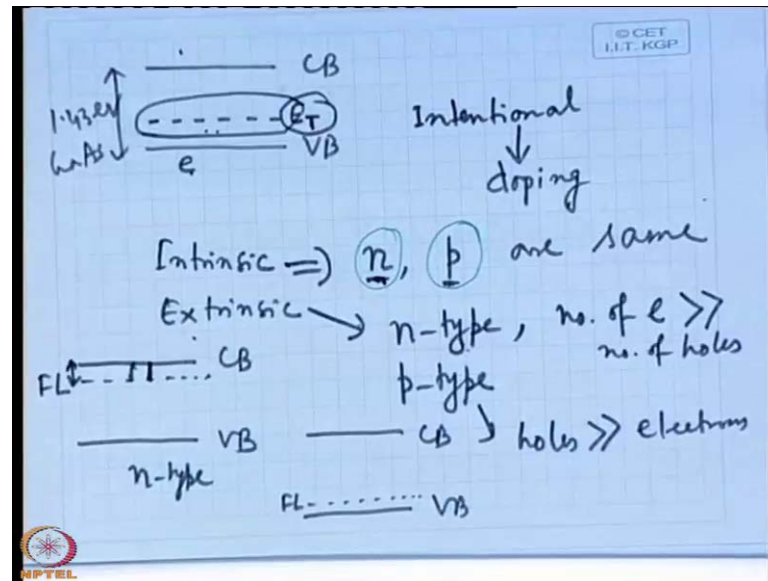 © CET
I.I.T. KGP
CB
1.43 eV
GaAs
e_T
VB
e
Intentional
↓
doping
Intrinsic ⇒ n, p are same
Extrinsic → n-type, no. of e >>
no. of holes
p-type
holes >> electrons
FL
CB
VB
n-type
CB
FL
VB
NPTEL